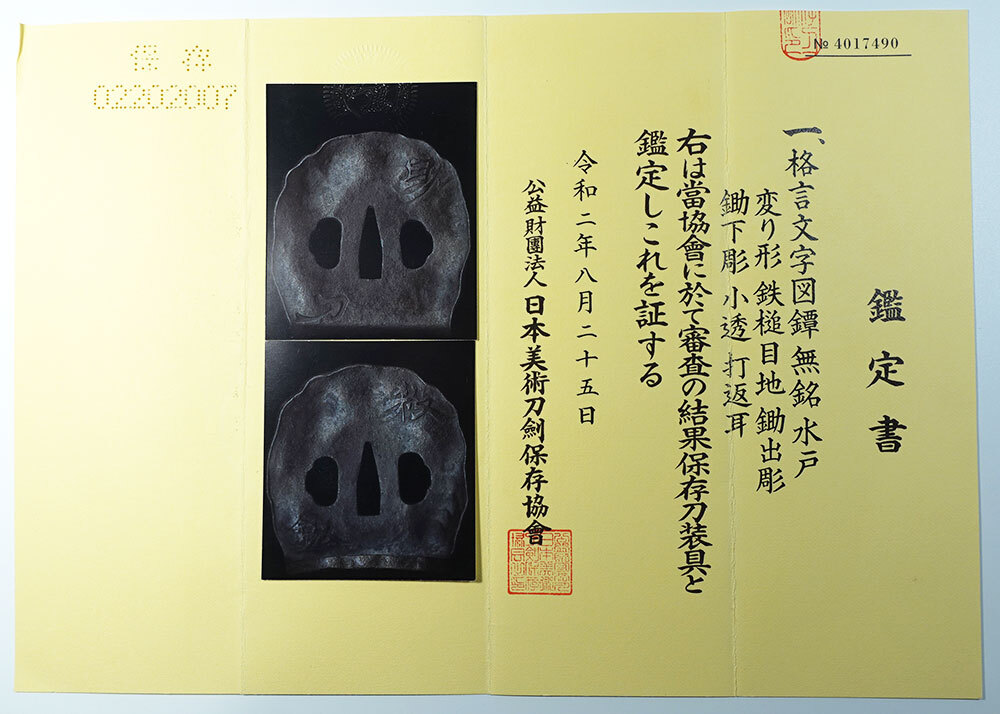 № 4017490
鑑定書
一、格言文字図鐔 無銘 水戸
変り形 鉄槌目地 鋤出彫
鋤下彫 小透 打返耳
右は當協會に於て審査の結果保存刀装具と
鑑定しこれを証する
令和二年八月二十五日
公益財團法人 日本美術刀劍保存協會
保存
02202007